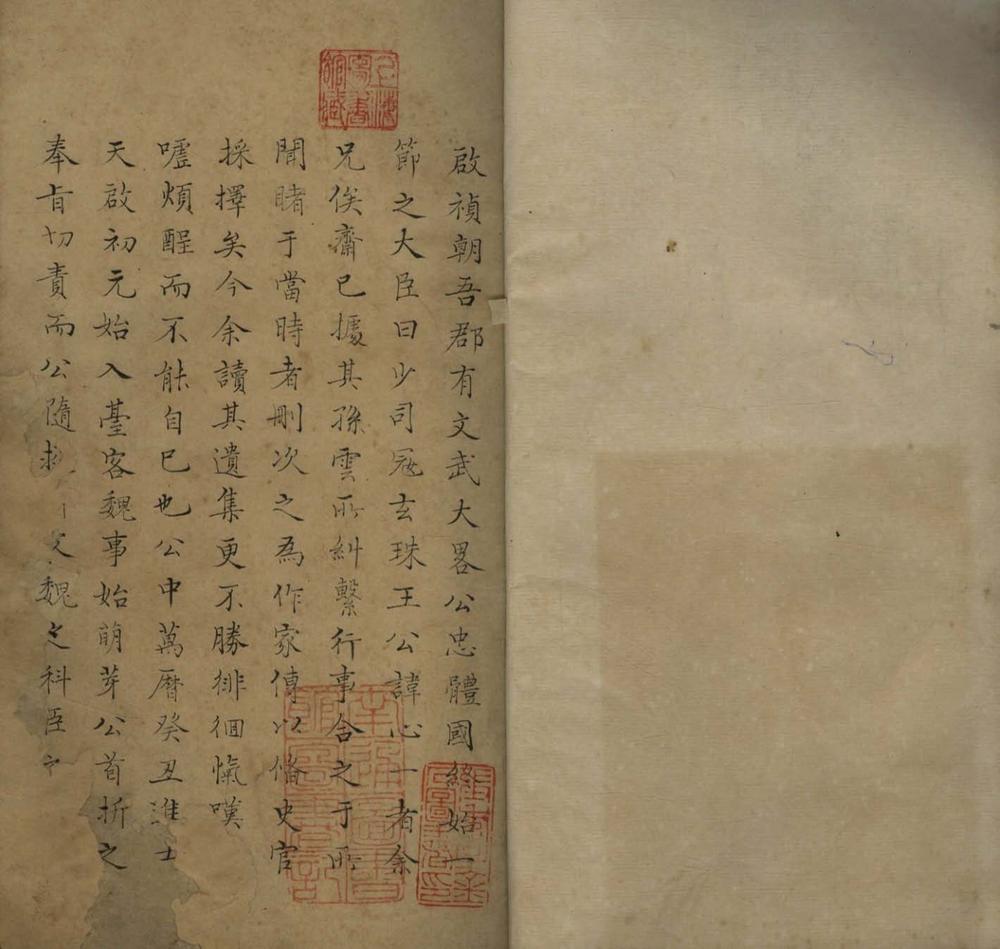 啟禎朝吾郡有文武大畧公忠體國終始一
節之大臣曰少司冦玄珠王公諱心一者余
兄俟齋已據其孫雲所糾繫行事合之于所
聞睹于當時者刪次之為作家傳以俻史官
採擇矣今余讀其遺集更不勝徘徊愾嘆
噓煩酲而不能自已也公中萬曆癸丑進士
天啟初元始入臺客魏事始萌芽公首折之
奉旨切責而公隨 魏之科臣